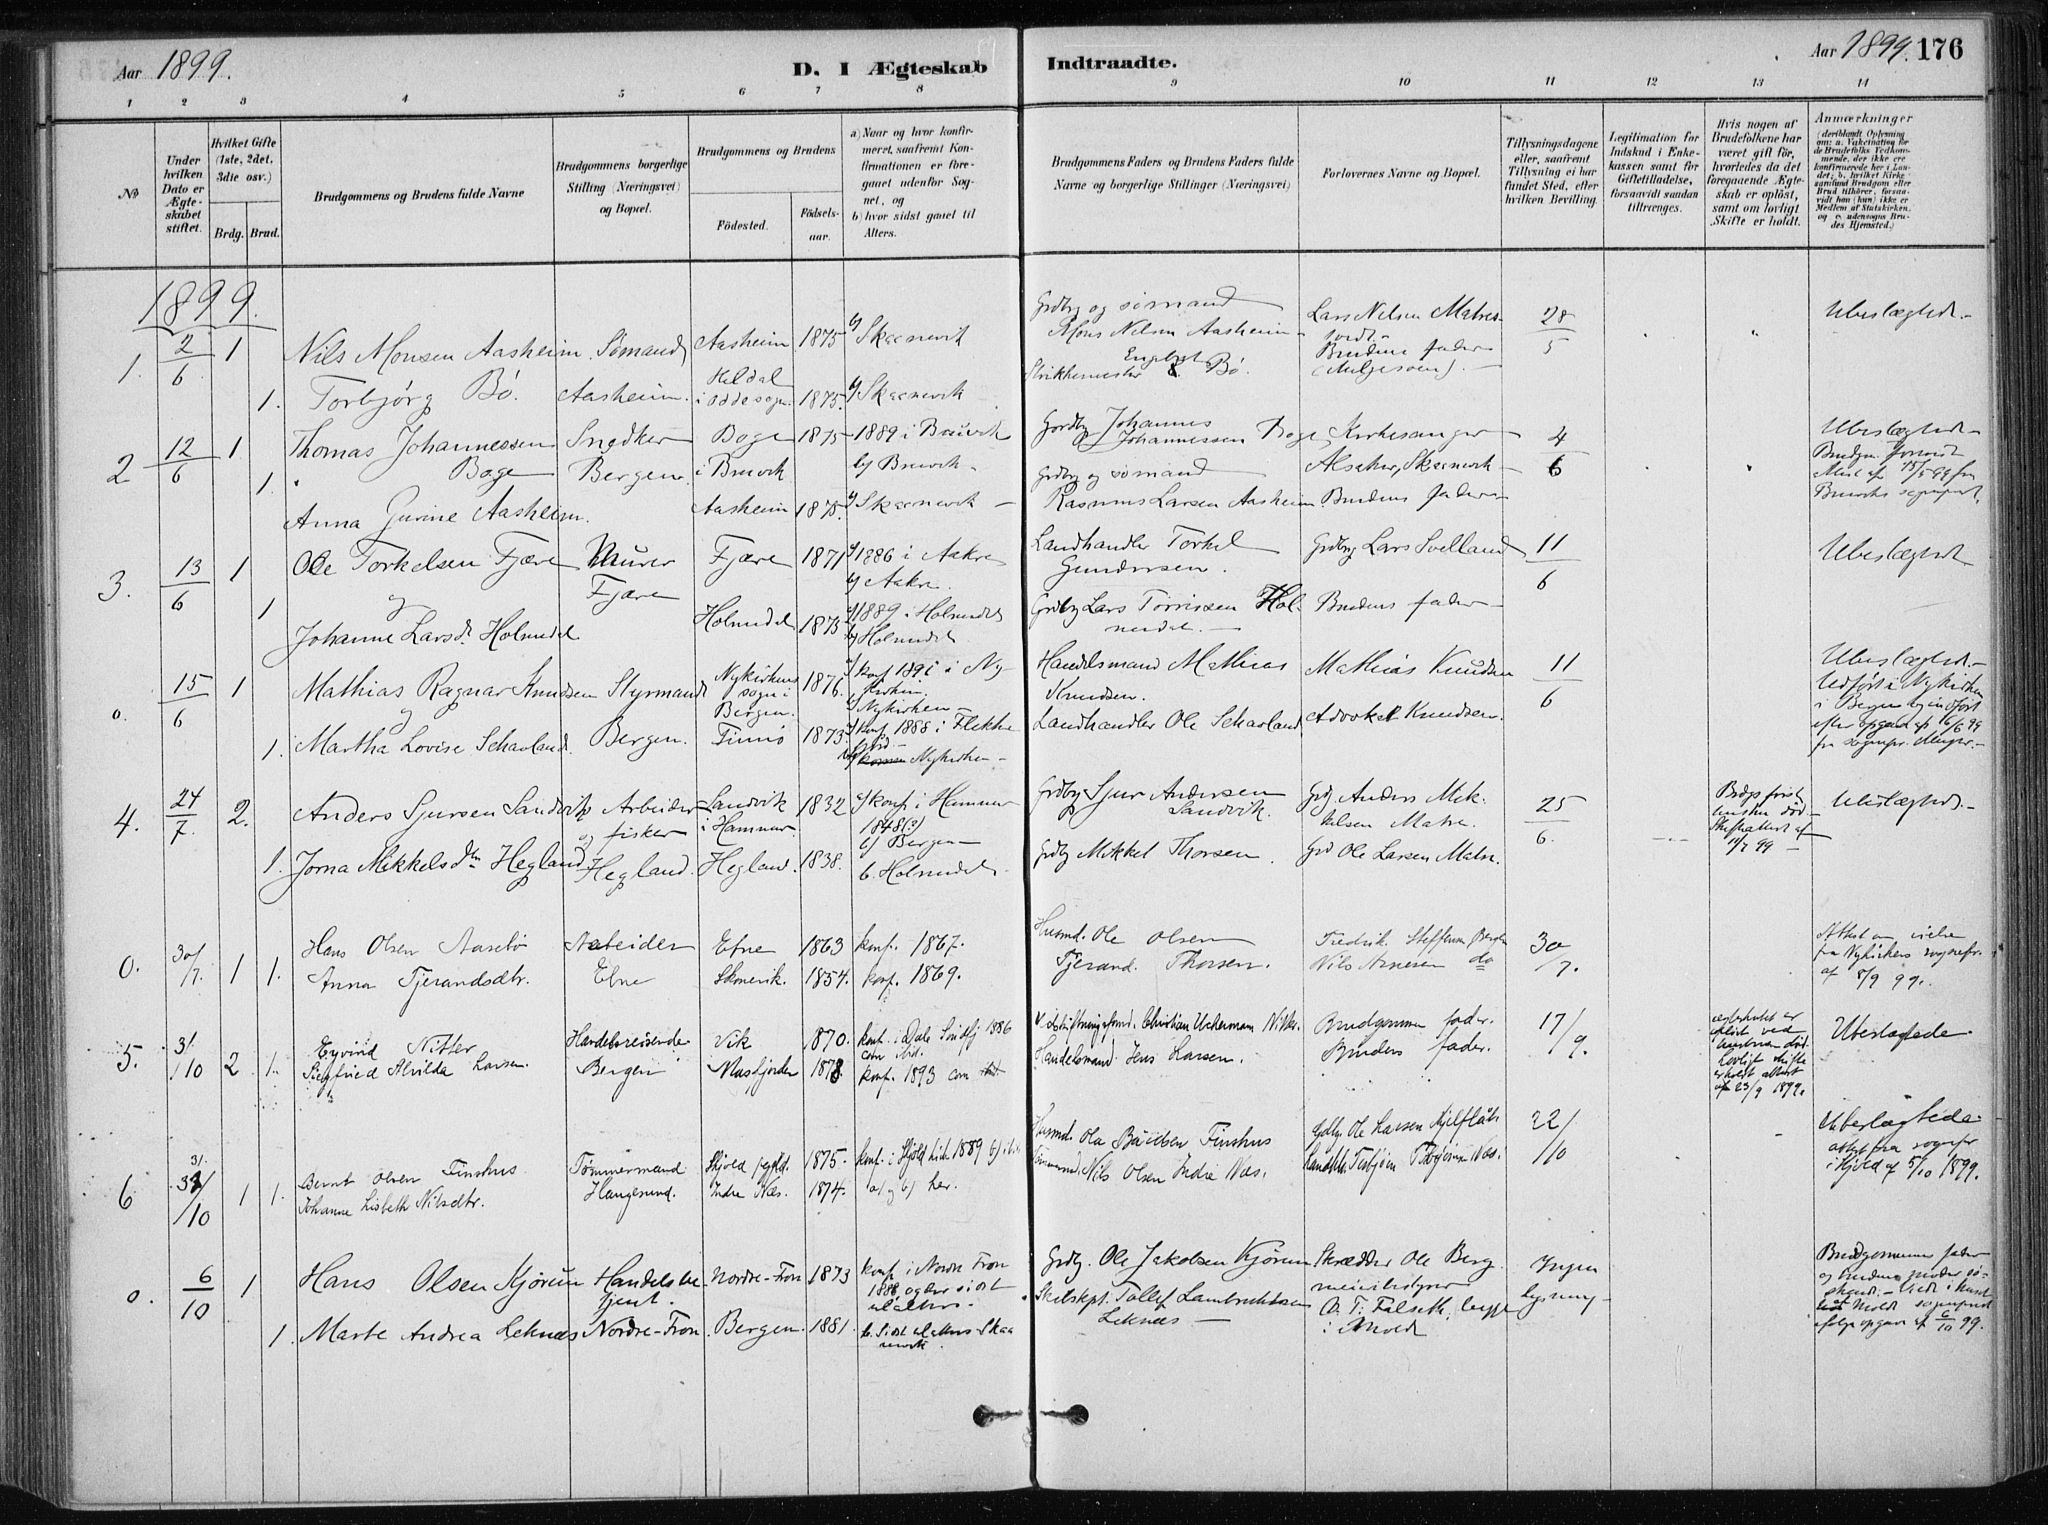 Aar 1899.
D. I Ægteskab
Indtraadte.
Aar 1899. 176
1 2 3 4 5 6 7 8 9 10 11 12 13 14
No
Under hvilken Dato er Ægteskabet stiftet.
Hvilket Gifte (1ste, 2det, 3die osv.)
Brdg. Brud.
Brudgommens og Brudens fulde Navne
Brudgommens borgerlige Stilling (Næringsvei) og Bopæl.
Brudgommens og Brudens
Fødested. Fødselsaar.
a) Naar og hvor konfirmeret, saafremt Konfirmationen er foregaaet udenfor Sognet, og
b) hvor sidst gaaet til Alters.
Brudgommens Faders og Brudens Faders fulde Navne og borgerlige Stillinger (Næringsvei)
Forlovernes Navne og Bopæl.
Tillysningsdagene eller, saafremt Tillysning ei har fundet Sted, efter hvilken Bevilling.
Legitimation for Indskud i Enkekassen samt for Giftetilladelse, forsaavidt saadan tiltrænges.
Hvis nogen af Brudefolkene har været gift før, hvorledes da det foregaaende Ægteskab er opløst, samt om lovligt Skifte er holdt.
Anmærkninger
(deriblandt Oplysning om: a. Vaccination for de Brudefolks Vedkommende, der ikke ere konfirmerede her i Landet; b. hvilket Kirkesamfund Brudgom eller Brud tilhører, forsaavidt han (hun) ikke er Medlem af Statskirken, og c. udensogns Brudes Hjemsted.)
1899.
1. 2/6 1 Nils Monsen Aasheim Sømand Aasheim 1875 b) Skaanevik
Grdbg og sømand Mons Nilsen Aasheim
Lars Nilsen Matre
28/5
Ubeslægted.
1. Torbjørg Bø. Aasheim. Heldal i Odde sogn. 1875. b) Skaanevik
Engebret Bø.
Brudens fader
2 12/6 1 Thomas Johannessen Boge Snedker Bergen Boge i Bruvik 1875 1889 i Bruvik b) Bruvik
Johannes Johannessen Boge
Kirkesanger Aksaker, Skaanevik
4/6
Ubeslægted
1. Anna Gurine Aasheim. Aasheim 1875. b) Skaanevik
Grdbg og sømand Rasmus Larsen Aasheim
Brudens fader
3. 13/6 1 Ole Torkelsen Fjære Murer Fjære Fjære 1871 1886 i Aakre b) Aakre
Landhandler Torkel Gundersen.
Grdbg Lars Svelland
11/6
Ubeslægted
og
1 Johanne Larsd. Holmedal Holmedal 1875 1889 i Holmedal b) Holmedal
Grdbg Lars Tørrissen Holmedal
Brudens fader
o. 15/6 1 Mathias Ragnar Knudsen Styrmand Bergen. Nykirkens sogn i Bergen. 1876. konf. 1891 i Nykirken. Nykirken
Handelsmand Mathias Knudsen.
Mathias Knudsen
11/6
Ubeslægted.
og
1. Martha Lovise Schavland. 1873. konf 1888 i Flekkefjord Nykirken
Landhandler Ole Schavland
Advokat Knudsen.
4. 24/7. 2. Anders Sjursen Sandvik Arbeider og fisker Hegland. Sandvik i Hammer. 1832 a) konf. i Hammer 1848(?) b) Bergen
Grdbg Sjur Andersen Sandvik.
Grd. Anders Mikkelsen Matre.
25/6.
Ubeslægted.
1. Jorna Mikkelsdtr Hegland Hegland. 1838. b. Holmedal.
Grdbg Mikkel Thorsen.
Grd Ole Larsen Matre.
0. 30/7. 1 1. Hans Olsen Aasebø Arbeider Etne Etne 1863 konf. 1867.
Husmd. Ole Olsen
Fredrik Steffensen Bergen
30/7.
Attest om vielse fra Nykirkens sognepr. af 8/9 99.
Anna Tjerandsdtr. Skonevik. 1854. konf. 1869.
Tjerand Thorsen.
Nils Arnesen do
5. 31/10 2 1. Eyvind Nitter Handelsreisende Bergen Vik 1870. konf. i Dale Søndfj 1886
Christian Uchermann Nitter.
Brudgommens fader.
17/9.
Ubeslægtede
Siegfried Alvilda Larsen. Masfjorden 1873 konf. 1893
Handelsmand Jens Larsen.
Brudens fader.
6 31/10 1 1. Bernt Olsen Tinshus Tømmermand Haugesund. Skjold 1875. konf. i Skjold 1889
Husmd. Ola Tinshus
Gdbg. Ole Larsen
22/10
Ubeslægtede attest fra sognepr. i Skjold af 5/10 1899.
Johanne Lisbeth Nilsdtr. Indre Næs. 1874. a) og b) her.
Nils Olsen Indre Næs.
o. 6/10 1 Hans Olsen Kjørum Handelsbetjent. Nordre-Fron Nordre-Fron 1873 konf. i Nordre Fron 1888, og der sidst til alters.
Grdbg. Ole Jakobsen Kjørum
Skrædder Ole Berg
Ingen lysning
1. Marte Andrea Leknæs Bergen. 1881. b. Sidst til alters Skaanevik.
Skibskpt. Tollef Lambrechtsen Leknæs
A. T. Falseth, begge i Molde